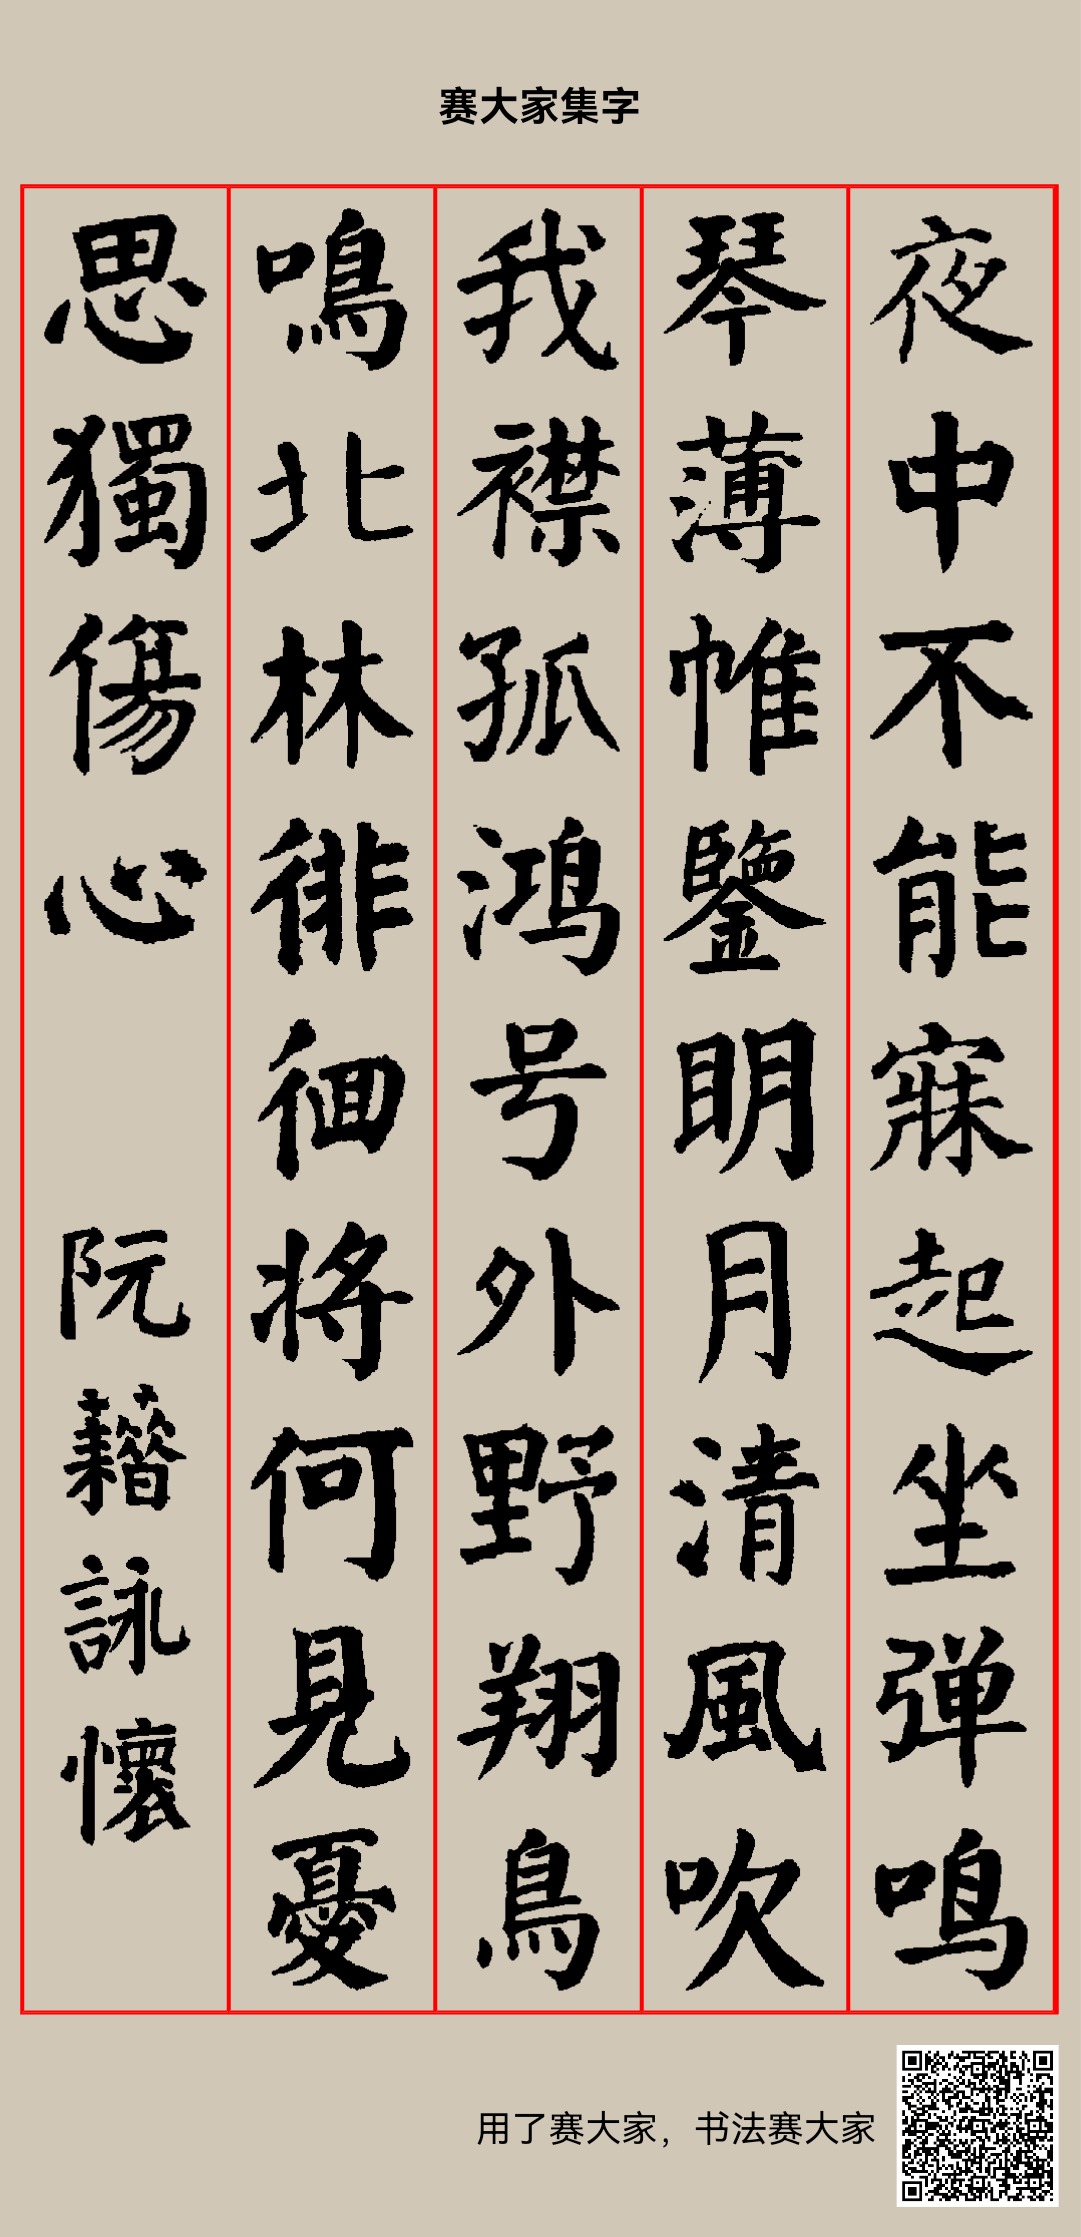 赛大家集字
夜中不能寐起坐弹鸣
琴薄帷鑒明月清風吹
我襟孤鸿号外野翔鳥
鳴北林徘徊将何見憂
思獨傷心
阮藉詠懷
用了赛大家，书法赛大家